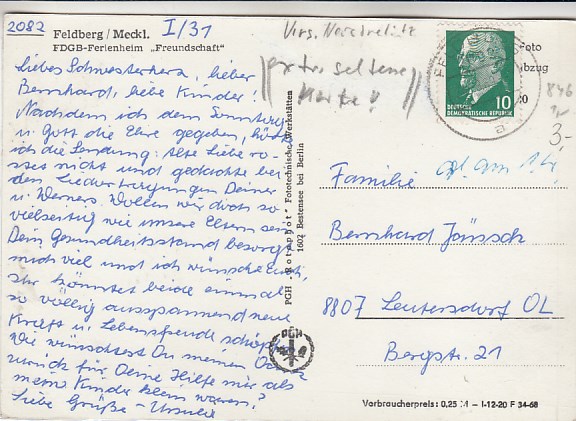 2082
I/31
Feldberg/Meckl.
FDGB-Ferienheim „Freundschaft"
Liebes Schwesterherz, lieber
Bernhard, liebe Kinder!
Nachdem ich dem Sonntag
u. Gott die Ehre gegeben, hörte
ich die Sendung: Alte Liebe ro-
stet nicht und gedachte bei
den Liedertragungen Deiner
u. Werners. Wollen wir doch so
vielseitig wie unsere Eltern sein.
Dein Gesundheitsstand besorgt
mich viel und ich wünsche euch,
Ihr könntet beide einmal
so völlig ausspannend neue
Kraft u. Lebensfreude schöpfen.
Wie wünschest Du meinen
zurück für Deine Hilfe mir als
meine Kinder klein waren?
Liebe Grüße - Ursula
extra seltene
Karte!!
PGH „Rotophot" Fototechnische Werkstätten
1602 Bestensee bei Berlin
PGH
Foto
bzug
10
DEUTSCHE
DEMOKRATISCHE REPUBLIK
a
846
3,-
Familie
Bernhard Jänsch
8807 Leutersdorf OL
Bergstr. 21
Verbraucherpreis: 0,25 M - I-12-20 F 34-68